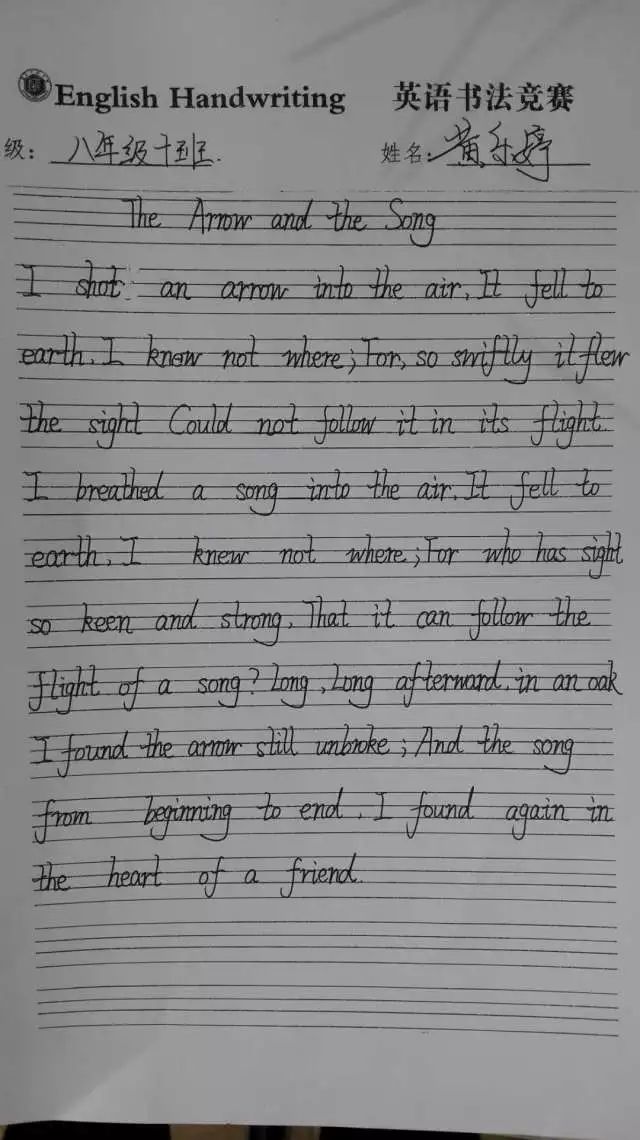 English Handwriting 英语书法竞赛
级: 八年级十班. 姓名: 黄 婷
The Arrow and the Song
I shot an arrow into the air, It fell to
earth, I knew not where; For, so swiftly it flew
the sight Could not follow it in its flight.
I breathed a song into the air, It fell to
earth, I knew not where; For who has sight
so keen and strong, That it can follow the
flight of a song? Long, Long afterward, in an oak
I found the arrow still unbroke; And the song
from beginning to end, I found again in
the heart of a friend.